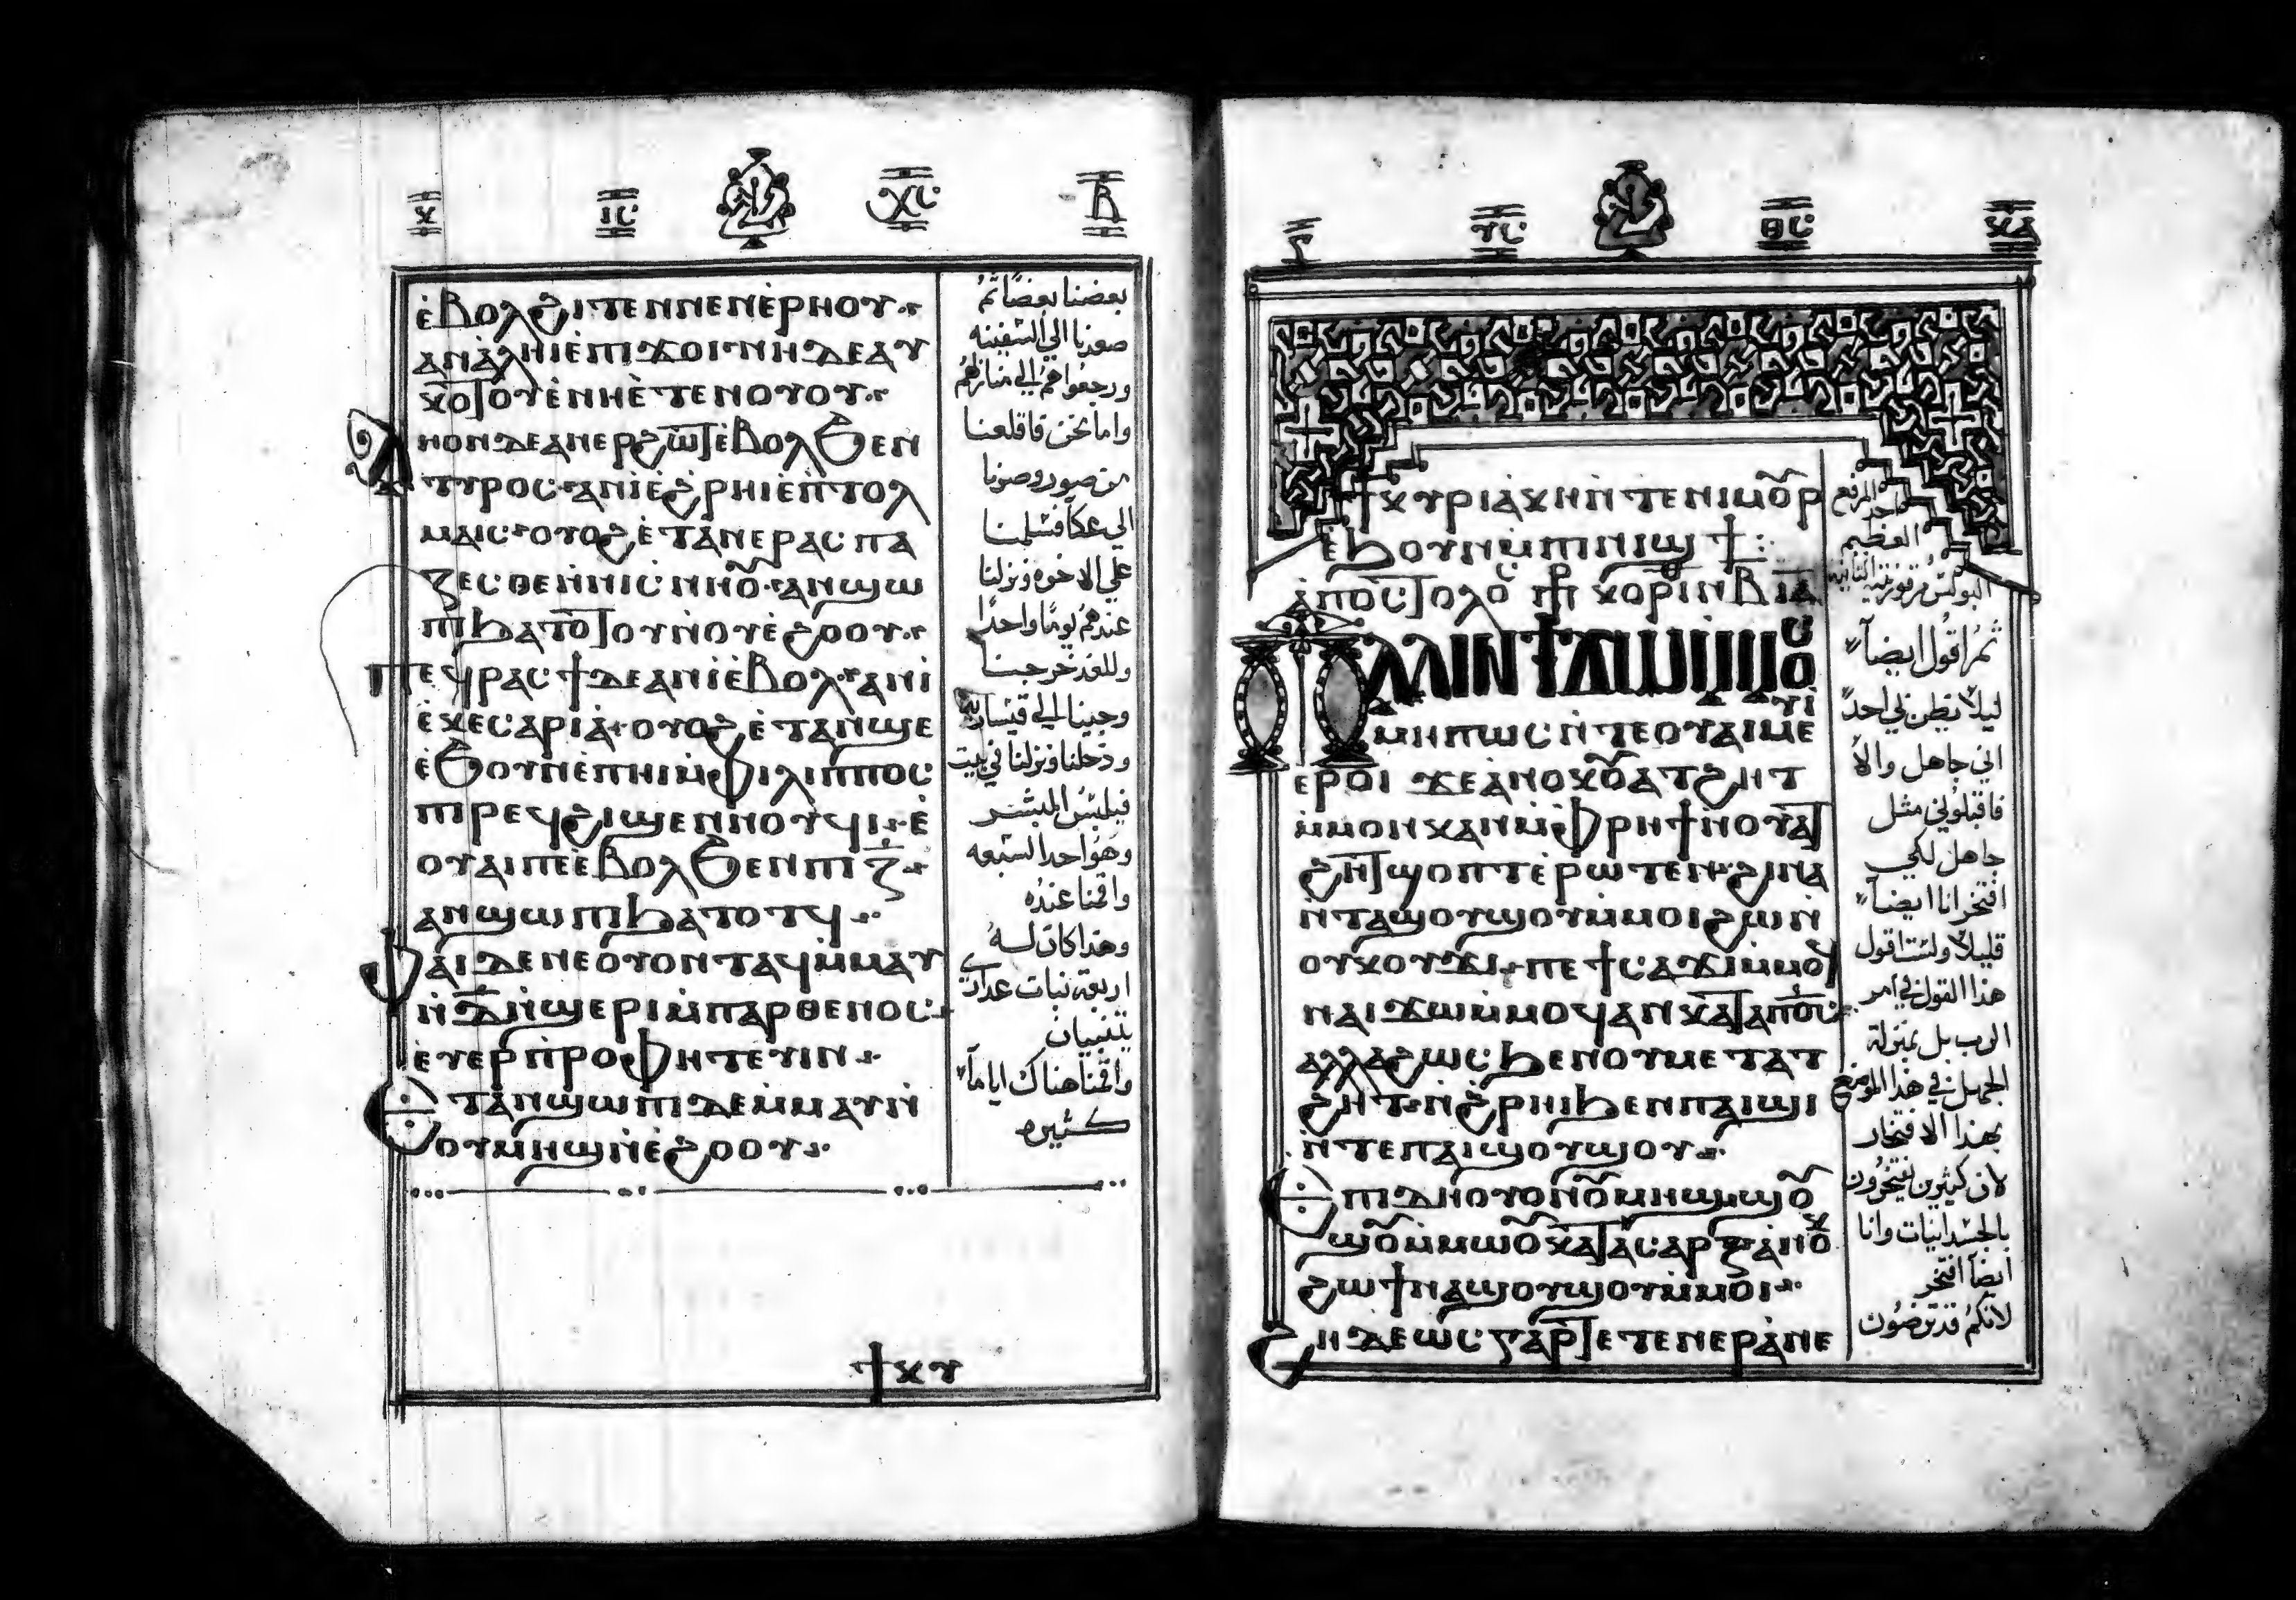 ⲕ ⲓⲥ ⲭⲥ ⲃ
ⲉ̀ⲃⲟⲗϩⲓⲧⲉⲛⲛⲉⲛⲉ̀ⲣⲏⲟⲩ
ⲁⲛⲁ̀ⲗⲏⲓⲉ̀ⲡⲓϫⲟⲓ ⲛⲏⲇⲉⲁⲩ
ⲕⲟⲧⲟⲩⲉ̀ⲛⲏⲉ̀ⲧⲉⲛⲟⲩⲟⲩ
ⲁⲛⲟⲛⲇⲉⲁⲛⲉⲣϩⲱⲧⲉ̀ⲃⲟⲗϧⲉⲛ
ⲧⲩⲣⲟⲥ ⲁⲛⲓ̀ⲉ̀ϩⲣⲏⲓⲉ̀ⲡⲧⲟⲗ
ⲙⲁⲓⲥ ⲟⲩⲟϩⲉ̀ⲧⲁⲛⲉⲣⲁⲥⲡⲁ
ⲍⲉⲥⲑⲉⲛ̀ⲛⲓⲥⲛⲏⲟⲩ ⲁⲛϣⲱ
ⲡⲓϧⲁⲧⲟⲧⲟⲩⲛ̀ⲟⲩⲉ̀ϩⲟⲟⲩ
ⲡⲉϥⲣⲁⲥϯⲇⲉⲁⲛⲓ̀ⲉ̀ⲃⲟⲗ ⲁⲛⲓ̀
ⲉ̀ⲕⲉⲥⲁⲣⲓⲁ̀ ⲟⲩⲟϩⲉ̀ⲧⲁⲛϣⲉ
ⲉ̀ϧⲟⲩⲛⲉ̀ⲡⲏⲓⲙ̀ⲫⲓⲗⲓⲡⲡⲟⲥ
ⲡⲓⲣⲉϥϩⲓϣⲉⲛⲛⲟⲩϥⲓ ⲉ̀
ⲟⲩⲁⲓⲡⲉⲉ̀ⲃⲟⲗϧⲉⲛⲡⲓⲍ̅
ⲁⲛϣⲱⲡⲓϧⲁⲧⲟⲧϥ
ⲫⲁⲓⲇⲉⲛⲉⲟⲩⲟⲛⲧⲁϥⲙ̀ⲙⲁⲩ
ⲛ̀ⲇ̅ⲛ̀ϣⲉⲣⲓⲙ̀ⲡⲁⲣⲑⲉⲛⲟⲥ
ⲉⲩⲉⲣⲡ̀ⲣⲟⲫⲏⲧⲉⲩⲓⲛ
ⲉⲧⲁⲛϣⲱⲡⲓⲇⲉⲙ̀ⲙⲁⲩⲛ̀
ⲟⲩⲙⲏϣⲛ̀ⲉ̀ϩⲟⲟⲩ
ϯⲕⲩ
بعضنا بعضاً ثمُ
صعدنا الي السفينه
ورجعُوا همُ الي منازلهُم
واما نحن فاقلعنا
من صور وصرنا
الي عكا فسلمنا
علي الاخوه ونزلنا
عندهُم يومًا واحداً
وللغد خرجنا
وجينا الي قيساريه
ودخلنا ونزلنا في بيت
فيلبسُ المبشر
وهُو احد السبعه
واقمنا عندُه
وهذا كان لهُ
اربعة بنات عداري
يتنبيان
واقمنا هناك اياماً
كثيره
ⲩⲥ ⲑⲥ ⲕⲁ
ϯⲕⲩⲣⲓⲁ̀ⲕⲏⲛ̀ⲧⲉⲛⲓⲙⲟⲩⲣ
ⲉ̀ϧⲟⲩⲛⲙ̀ⲡⲛⲓϣϯ
ⲁ̀ⲡⲟⲥⲧⲟⲗⲟⲥ ⲡⲣ ⲕⲟⲣⲓⲛⲑ ⲃ ⲓⲁ
ⲡⲁⲗⲓⲛϯϫⲱⲙ̀ⲙⲟⲥ
ϫⲉ
ⲙⲏⲡⲱⲥⲛ̀ⲧⲉⲟⲩⲁⲓⲙⲉ
ⲩⲓ̀
ⲉⲣⲟⲓ ϫⲉⲁ̀ⲛⲟⲕⲟⲩⲁⲧϩⲏⲧ
ⲙ̀ⲙⲟⲛⲕⲁⲛⲙ̀ⲫⲣⲏϯⲛ̀ⲟⲩⲁⲧ
ϩⲏⲧϣⲟⲡⲧⲉⲣⲱⲧⲉⲛ ϩⲓⲛⲁ
ⲛ̀ⲧⲁϣⲟⲩϣⲟⲩⲙ̀ⲙⲟⲓϩⲱⲛ̀
ⲟⲩⲕⲟⲩϫⲓ ⲡⲉϯⲥⲁϫⲓⲙ̀ⲙⲟϥ
ⲛⲁⲓϫⲱⲙ̀ⲙⲟϥⲁⲛⲕⲁⲧⲁⲡⲟ̅ⲥ̅
ⲁⲗⲗⲁϩⲱⲥϧⲉⲛⲟⲩⲙⲉⲧⲁⲧ
ϩⲏⲧ ⲛ̀ϩⲣⲏⲓϧⲉⲛⲡⲁⲓϣⲓ
ⲛ̀ⲧⲉⲡⲁⲓϣⲟⲩϣⲟⲩ
ⲉⲡⲓⲇⲏⲟⲩⲟⲛⲟⲩⲙⲏϣ ϣⲟⲩ
ϣⲟⲩⲙ̀ⲙⲱⲟⲩⲕⲁⲧⲁⲥⲁⲣⲝ ⲁ̀ⲛⲟⲕ
ϩⲱϯⲛⲁϣⲟⲩϣⲟⲩⲙ̀ⲙⲟⲓ
ϩⲏⲇⲉⲱⲥⲅⲁⲣⲧⲉⲧⲉⲛⲉⲣⲁ̀ⲛⲉ
احد الرفع
العظيم
ثمُ اقول ايضاً
ليلا يظن بي احداً
اني جاهل والا
فاقبلوُني مثل
جاهل لكي
افتخر انا ايضاً
قليلا ولست اقول
هذا القول في امر
الرب بل بمنزلة
الجهل في هذا الموضع
بهذا الافتخار
لان كثيرين يفتخرُون
بالجسدانيات وانا
ايضاً افتخر
لانكمُ قد ترضُون